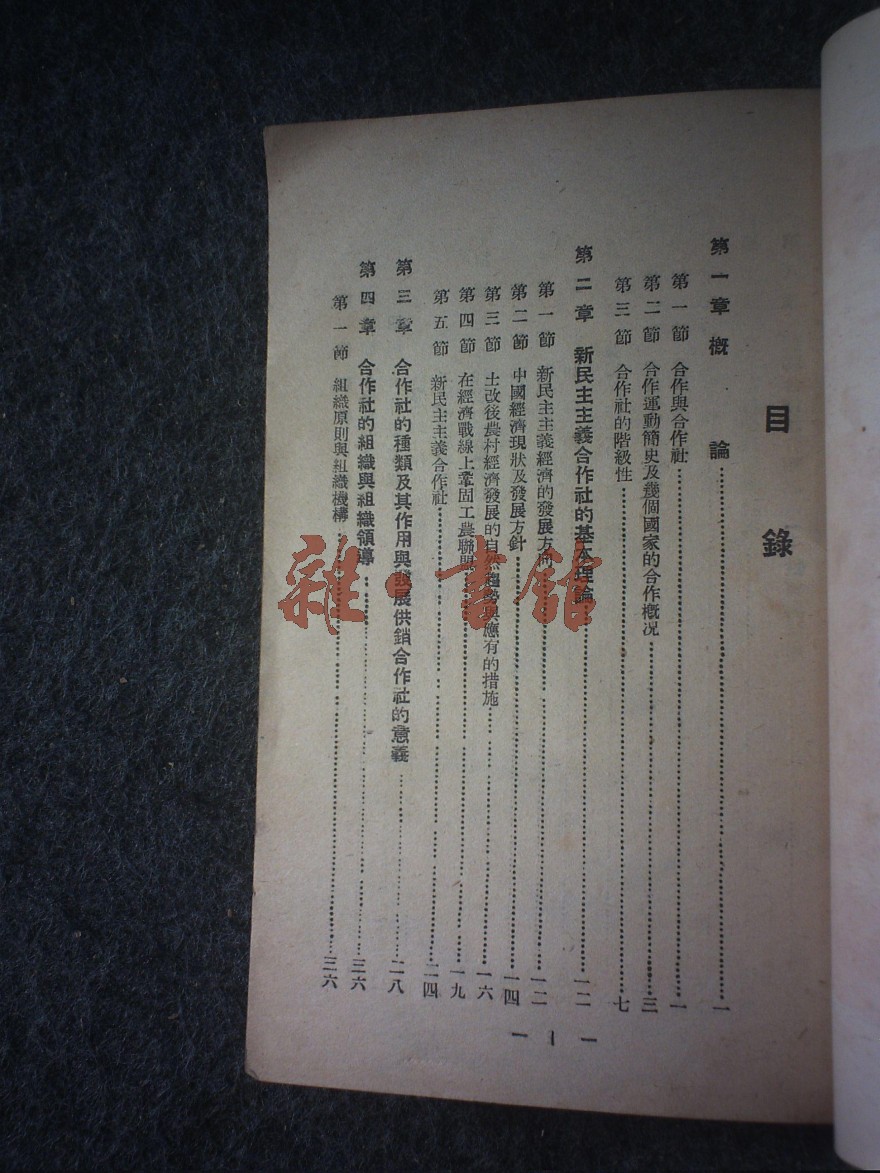 目錄
第一章 概論……一
第一節 合作與合作社……一
第二節 合作運動簡史及幾個國家的合作概況……三
第三節 合作社的階級性……七
第二章 新民主主義合作社的基本理論……一二
第一節 新民主主義經濟的發展方向……一二
第二節 中國經濟現狀及發展方針……一四
第三節 土改後農村經濟發展的自然趨勢與應有的措施……一六
第四節 在經濟戰線上鞏固工農聯盟……一九
第五節 新民主主義合作社……二四
第三章 合作社的種類及其作用與發展供銷合作社的意義……二八
第四章 合作社的組織與組織領導……三六
第一節 組織原則與組織機構……三六
— 1 —
雜·書館